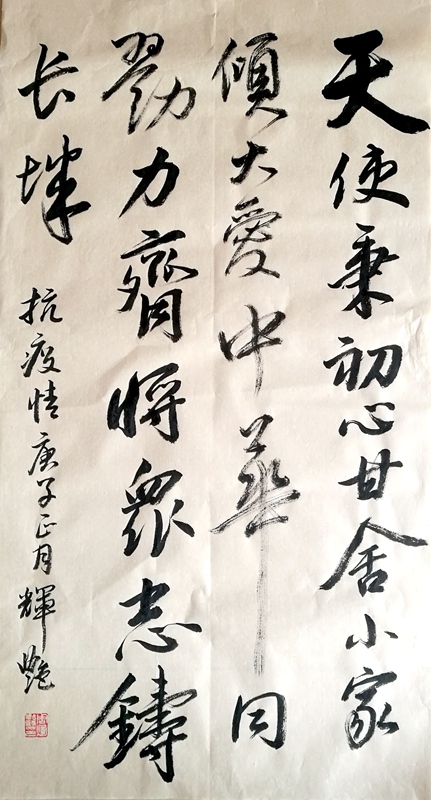 天使秉初心甘舍小家
倾大爱中華同
勠力齊將衆志鑄
长城
抗疫情庚子正月輝艷